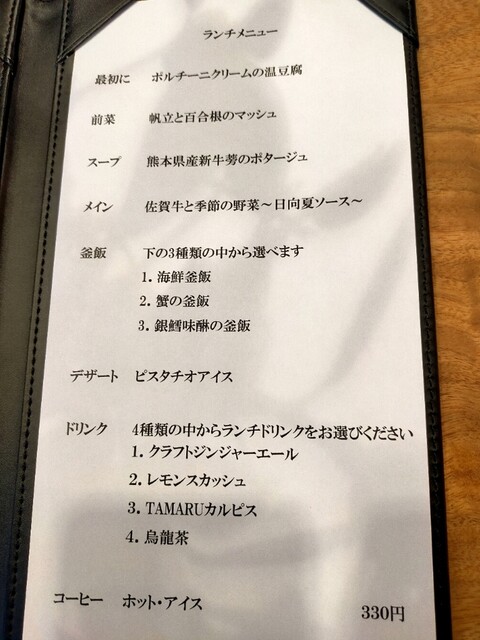 ランチメニュー
最初に ポルチーニクリームの温豆腐
前菜 帆立と百合根のマッシュ
スープ 熊本県産新牛蒡のポタージュ
メイン 佐賀牛と季節の野菜～日向夏ソース～
釜飯 下の3種類の中から選べます
1. 海鮮釜飯
2. 蟹の釜飯
3. 銀鱈味醂の釜飯
デザート ピスタチオアイス
ドリンク 4種類の中からランチドリンクをお選びください
1. クラフトジンジャーエール
2. レモンスカッシュ
3. TAMARUカルピス
4. 烏龍茶
コーヒー ホット・アイス 330円